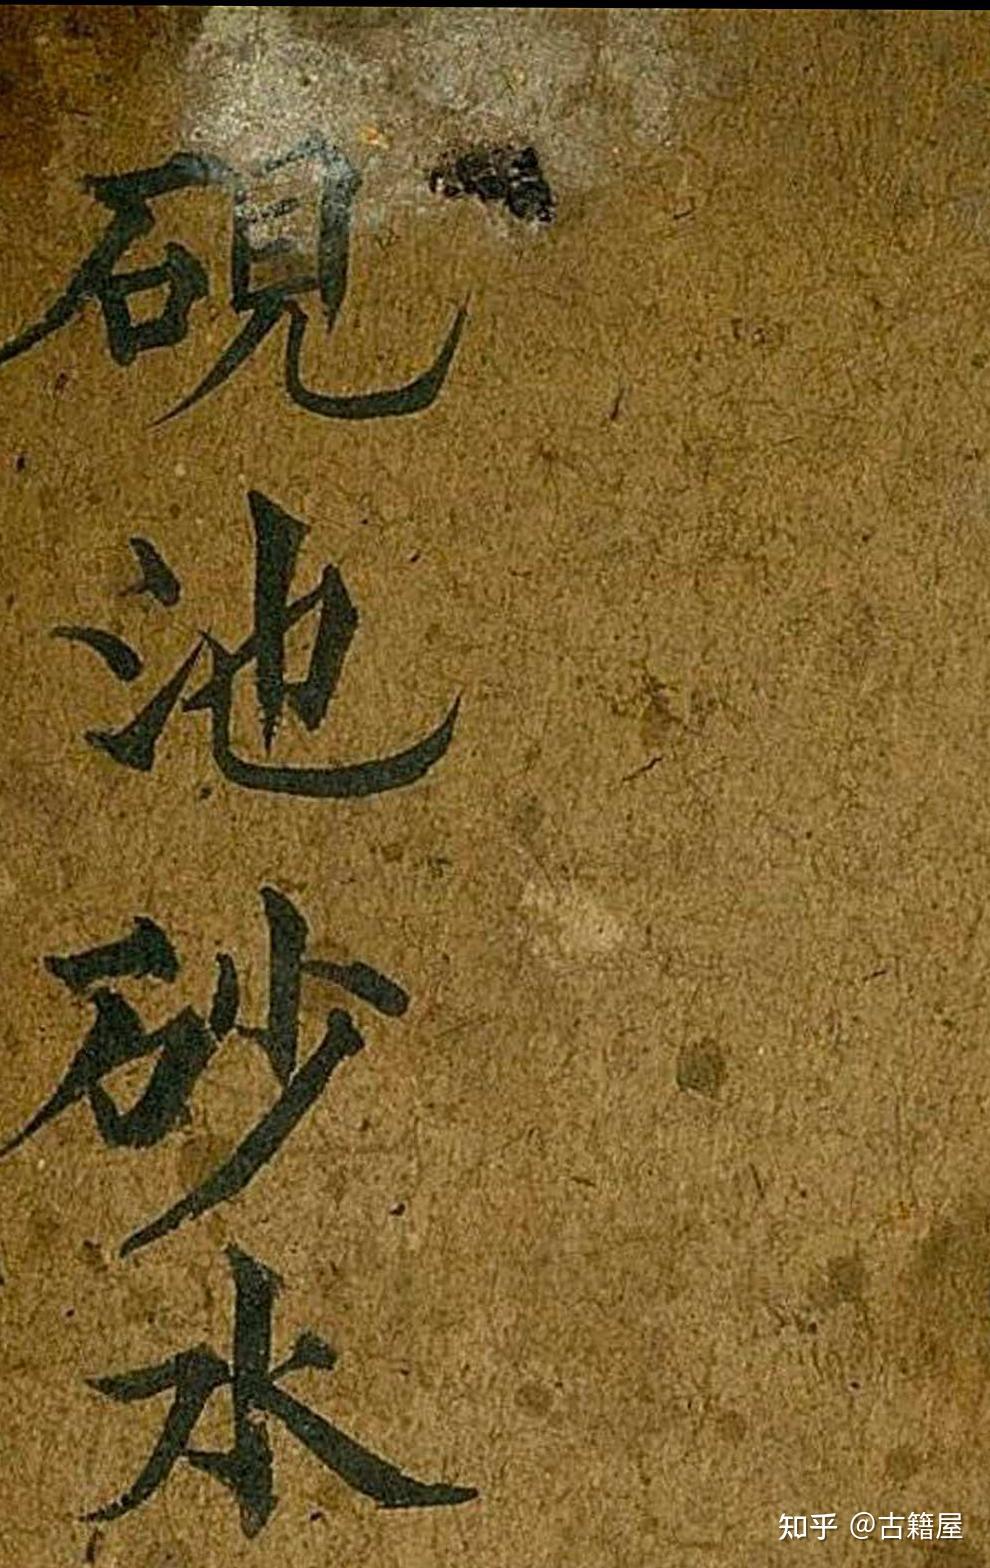 硯池砂水
知乎 @古籍屋